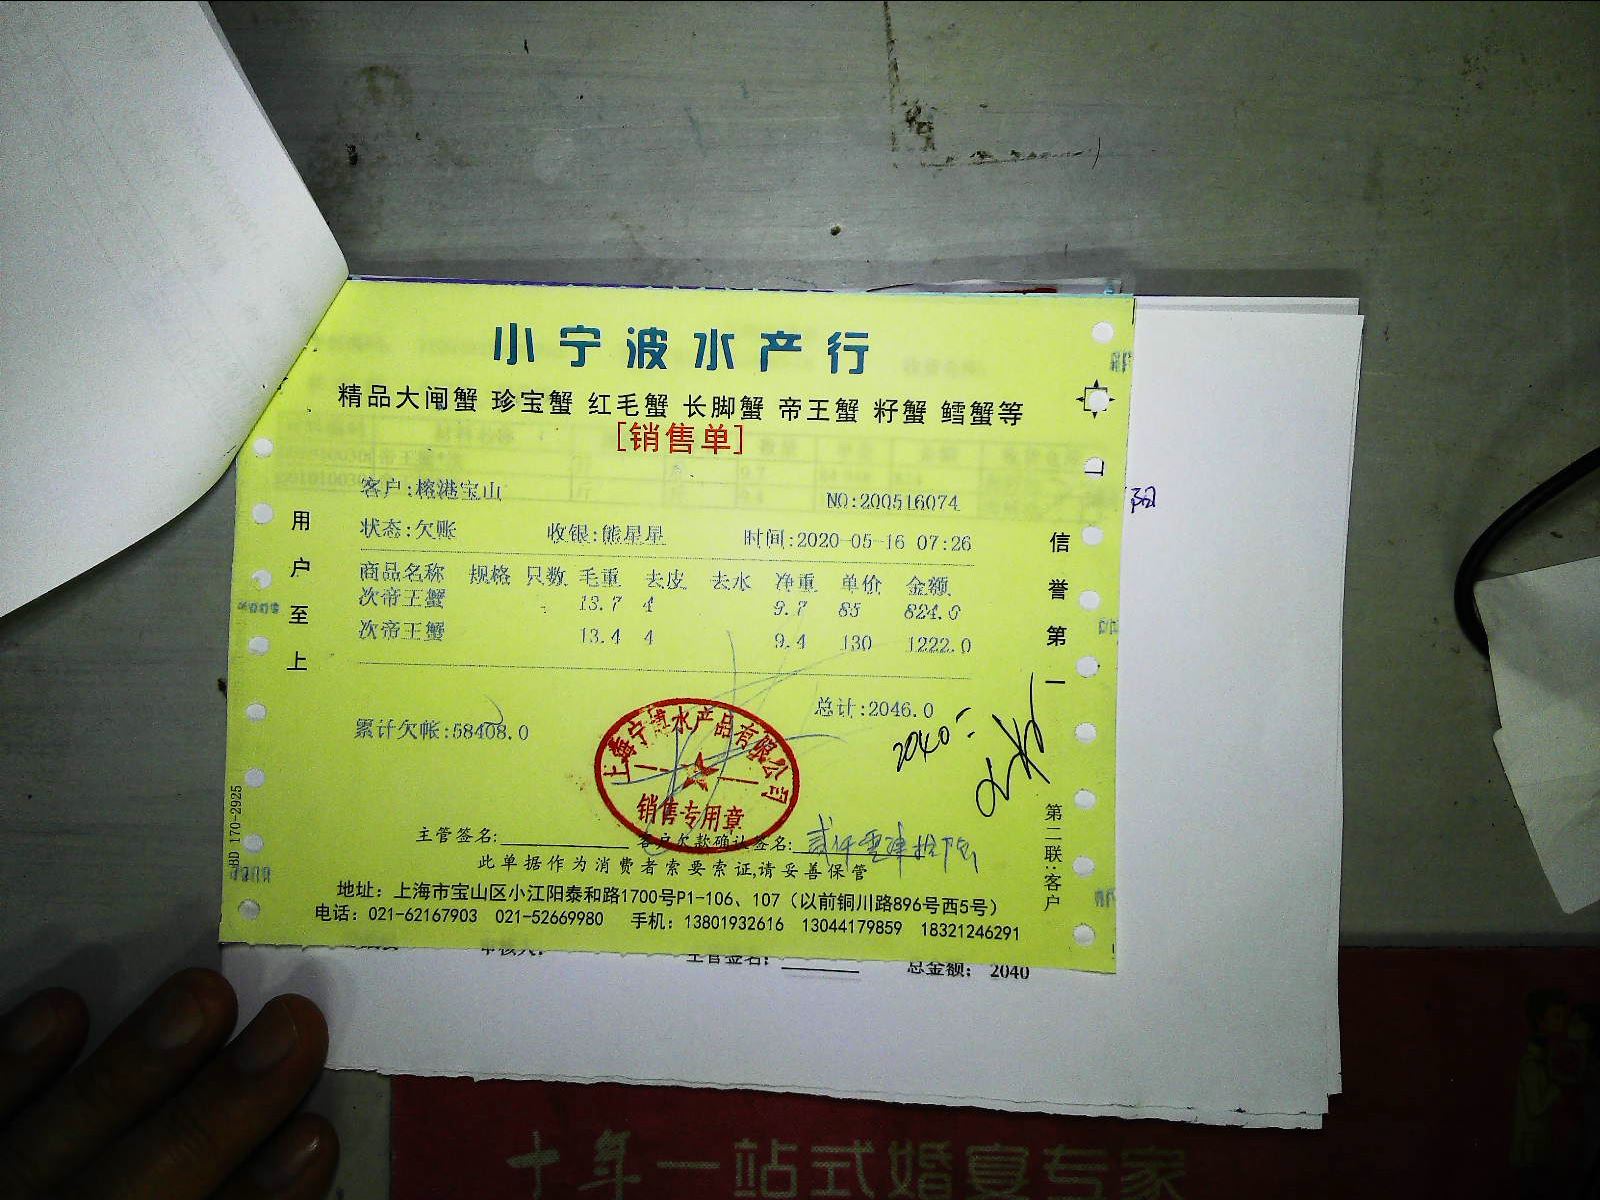 小宁波水产行
精品大闸蟹 珍宝蟹 红毛蟹 长脚蟹 帝王蟹 籽蟹 鳕蟹等
[销售单]
客户:榕港宝山 NO:200516074
状态:欠账 收银:熊星星 时间:2020-05-16 07:26
商品名称 规格 只数 毛重 去皮 去水 净重 单价 金额
次帝王蟹 13.7 4 9.7 85 824.0
次帝王蟹 13.4 4 9.4 130 1222.0
总计:2046.0
累计欠帐:58408.0
2040
上海宁波水产品有限公司
销售专用章
主管签名: 客户欠款确认签名:
此单据作为消费者索要索证,请妥善保管
地址：上海市宝山区小江阳泰和路1700号P1-106、107（以前铜川路896号西5号）
电话：021-62167903 021-52669980 手机：13801932616 13044179859 18321246291
用户至上
信誉第一
第二联:客户
170-2925
主管签名: 总金额： 2040
十年一站式婚宴专家